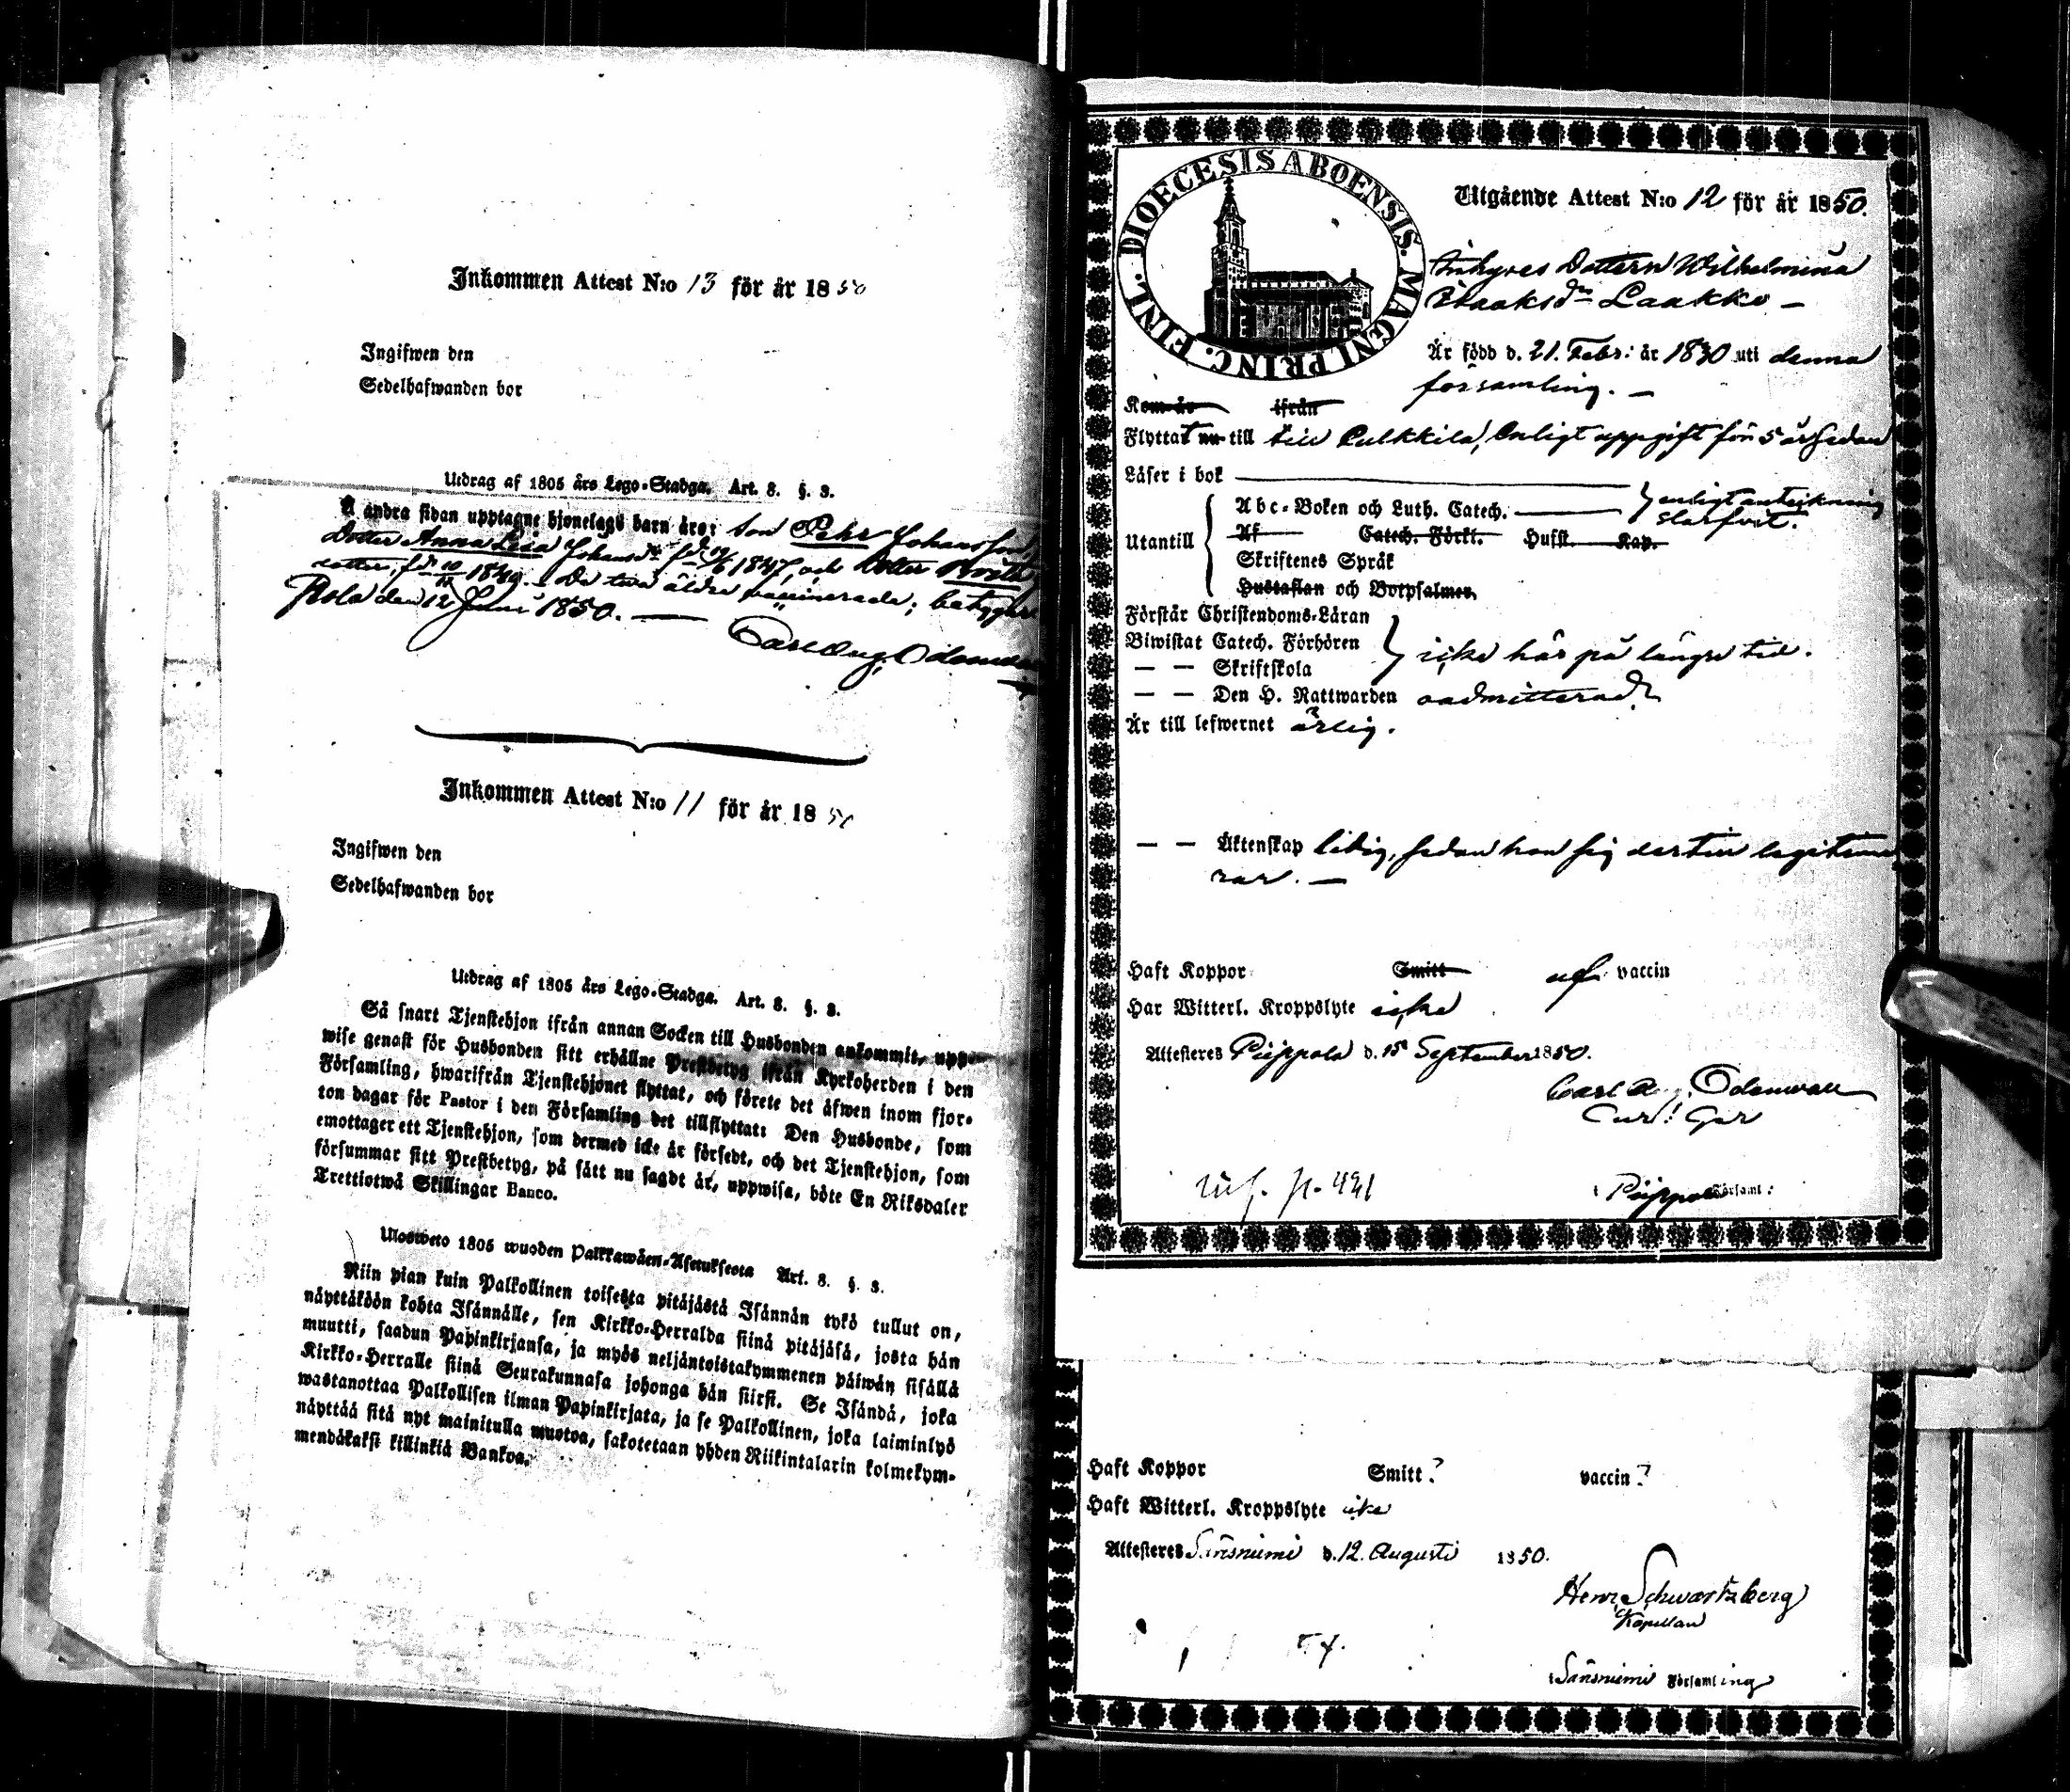 Inkommen Attest N:o 13 för år 1850
Ingifwen den
Sedelhafwanden bor
Utdrag af 1805 års Lego-Stadga. Art. 8. §. 3.
Å andra sidan upptagne hjonelags barn äro: Son Pehr Johansson,
Dotter Anna Lisa Johansdr 1847, och dotter
dotter, 1849. De två äldre vaccinerade; betygar
den 12 Juni 1850. —
Carl Aug. Odenwall
Inkommen Attest N:o 11 för år 1850
Ingifwen den
Sedelhafwanden bor
Utdrag af 1805 års Lego-Stadga. Art. 8. §. 3.
Så snart Tjenstehjon ifrån annan Socken till Husbonden ankommit, upp-
wise genast för Husbonden sitt erhållne Prestbetyg ifrån Kyrkoherden i den
Församling, hwarifrån Tjenstehjonet flyttat, och förete det äfwen inom fjor-
ton dagar för Pastor i den Församling det tillflyttat: Den Husbonde, som
emottager ett Tjenstehjon, som dermed icke är försedt, och det Tjenstehjon, som
försummar sitt Prestbetyg, på sätt nu sagdt är, uppwisa, böte En Riksdaler
Trettiotwå Skillingar Banco.
Ulosweto 1805 wuoden Palkkawäen-Asetuksesta Art. 8. §. 3.
Niin pian kuin Palkollinen toisesta pitäjästä Isännän tykö tullut on,
näyttäköön kohta Isännälle, sen Kirkko-Herralda siinä pitäjäsä, josta hän
muutti, saadun Papinkirjansa, ja myös neljäntoistakymmenen päiwän sisällä
Kirkko-Herralle siinä Seurakunnasa johonga hän siirsi. Se Isändä, joka
wastanottaa Palkollisen ilman Papinkirjata, ja se Palkollinen, joka laiminlyö
näyttää sitä nyt mainitulla muotoa, sakotetaan yhden Riikintalarin kolmekym-
mendäkaksi killinkiä Bankoa.
DIOECESIS ABOENSIS. MAGNI PRINC. FINL.
Utgående Attest N:o 12 för år 1850.
Inhyses Dottern Wilhelmina
Isaaksdr Laakko —
Är född d. 21. Febr: år 1830 uti denna
församling. —
Kom år ifrån
Flyttat nu till till Pulkkila, enligt uppgift för 5 år sedan
Läser i bok
Abc-Boken och Luth. Catech. enligt anteckning
slarfvit.
Utantill Af Catech. Förkl. Husst. Kap.
Skriftenes Språk
Hustaflan och Botpsalmer.
Förstår Christendoms-Läran
Biwistat Catech. Förhören icke här på längre tid.
— — Skriftskola
— — Den H. Nattwarden oadmitterad.
Är till lefwernet ärlig.
— — Äktenskap ledig, sedan hon sig dertill legitime-
rar. —
Haft Koppor Smitt vaccin
Har Witterl. Kroppslyte icke
Attesteres Piippola d. 15 September 1850.
Carl Aug. Odenwall
Piippola Församl:
Haft Koppor Smitt? vaccin?
Haft Witterl. Kroppslyte icke
Attesteres Säräisniemi d. 12. Augusti 1850.
Henr. Schwartzberg
Kapellan
Församling